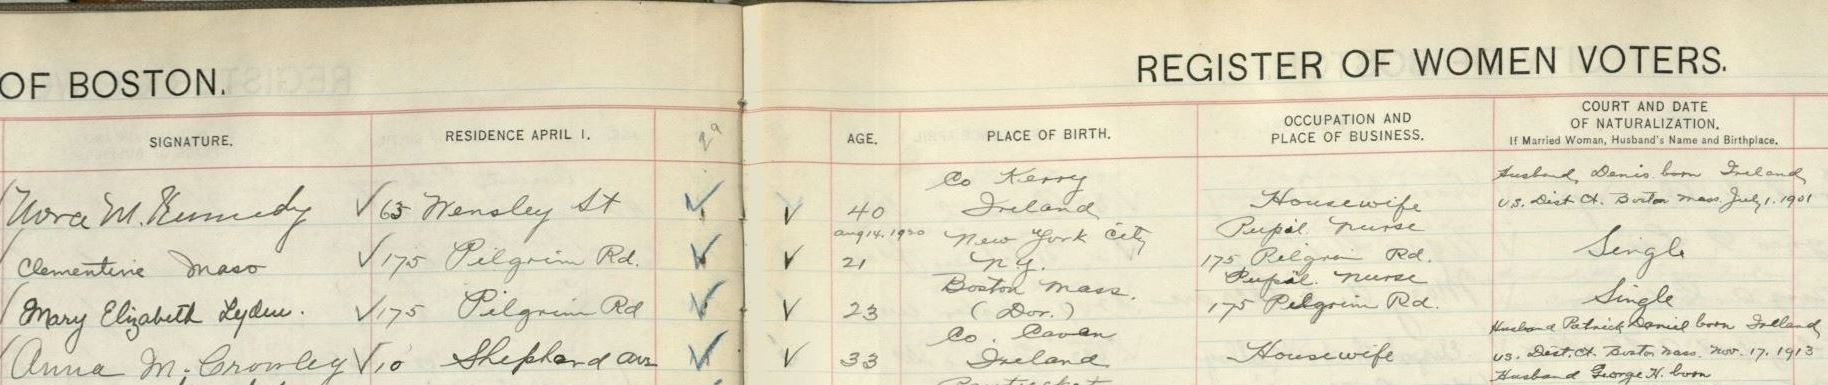 OF BOSTON.
REGISTER OF WOMEN VOTERS.
SIGNATURE.
RESIDENCE APRIL 1.
AGE.
PLACE OF BIRTH.
OCCUPATION AND
PLACE OF BUSINESS.
COURT AND DATE
OF NATURALIZATION.
If Married Woman, Husband's Name and Birthplace.
Nora M. Kennedy √ 63 Wensley St √ √ 40 Co Kerry
Ireland
Housewife
Husband, Denis born Ireland
U.S. Dist Ct. Boston Mass. July 1. 1901
Clementine Maso √ 175 Pilgrim Rd. √ √ Aug 14. 1920
21 New York City
N.Y.
Pupil Nurse
175 Pilgrim Rd.
Single
Mary Elizabeth Lyden. √ 175 Pilgrim Rd √ √ 23 Boston Mass.
(Dor.)
Pupil Nurse
175 Pilgrim Rd.
Single
Anna M. Crowley √ 10 Shephard Ave √ √ 33 Co. Cavan
Ireland
Housewife
Husband Patrick Daniel born Ireland
U.S. Dist. Ct. Boston Mass. Nov. 17. 1913
Husband George H. born